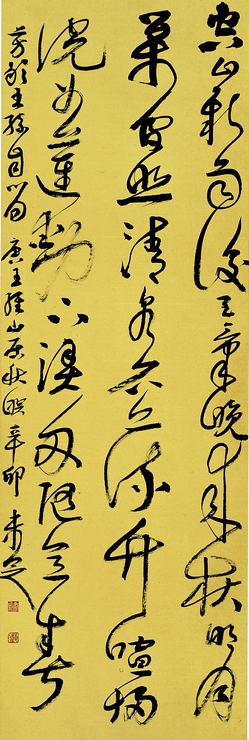 空山新雨後天氣晚來秋明月
松間照清泉石上流竹喧歸
浣女蓮動下漁舟隨意春
芳歇王孫自可留 唐王維山居秋暝 辛卯